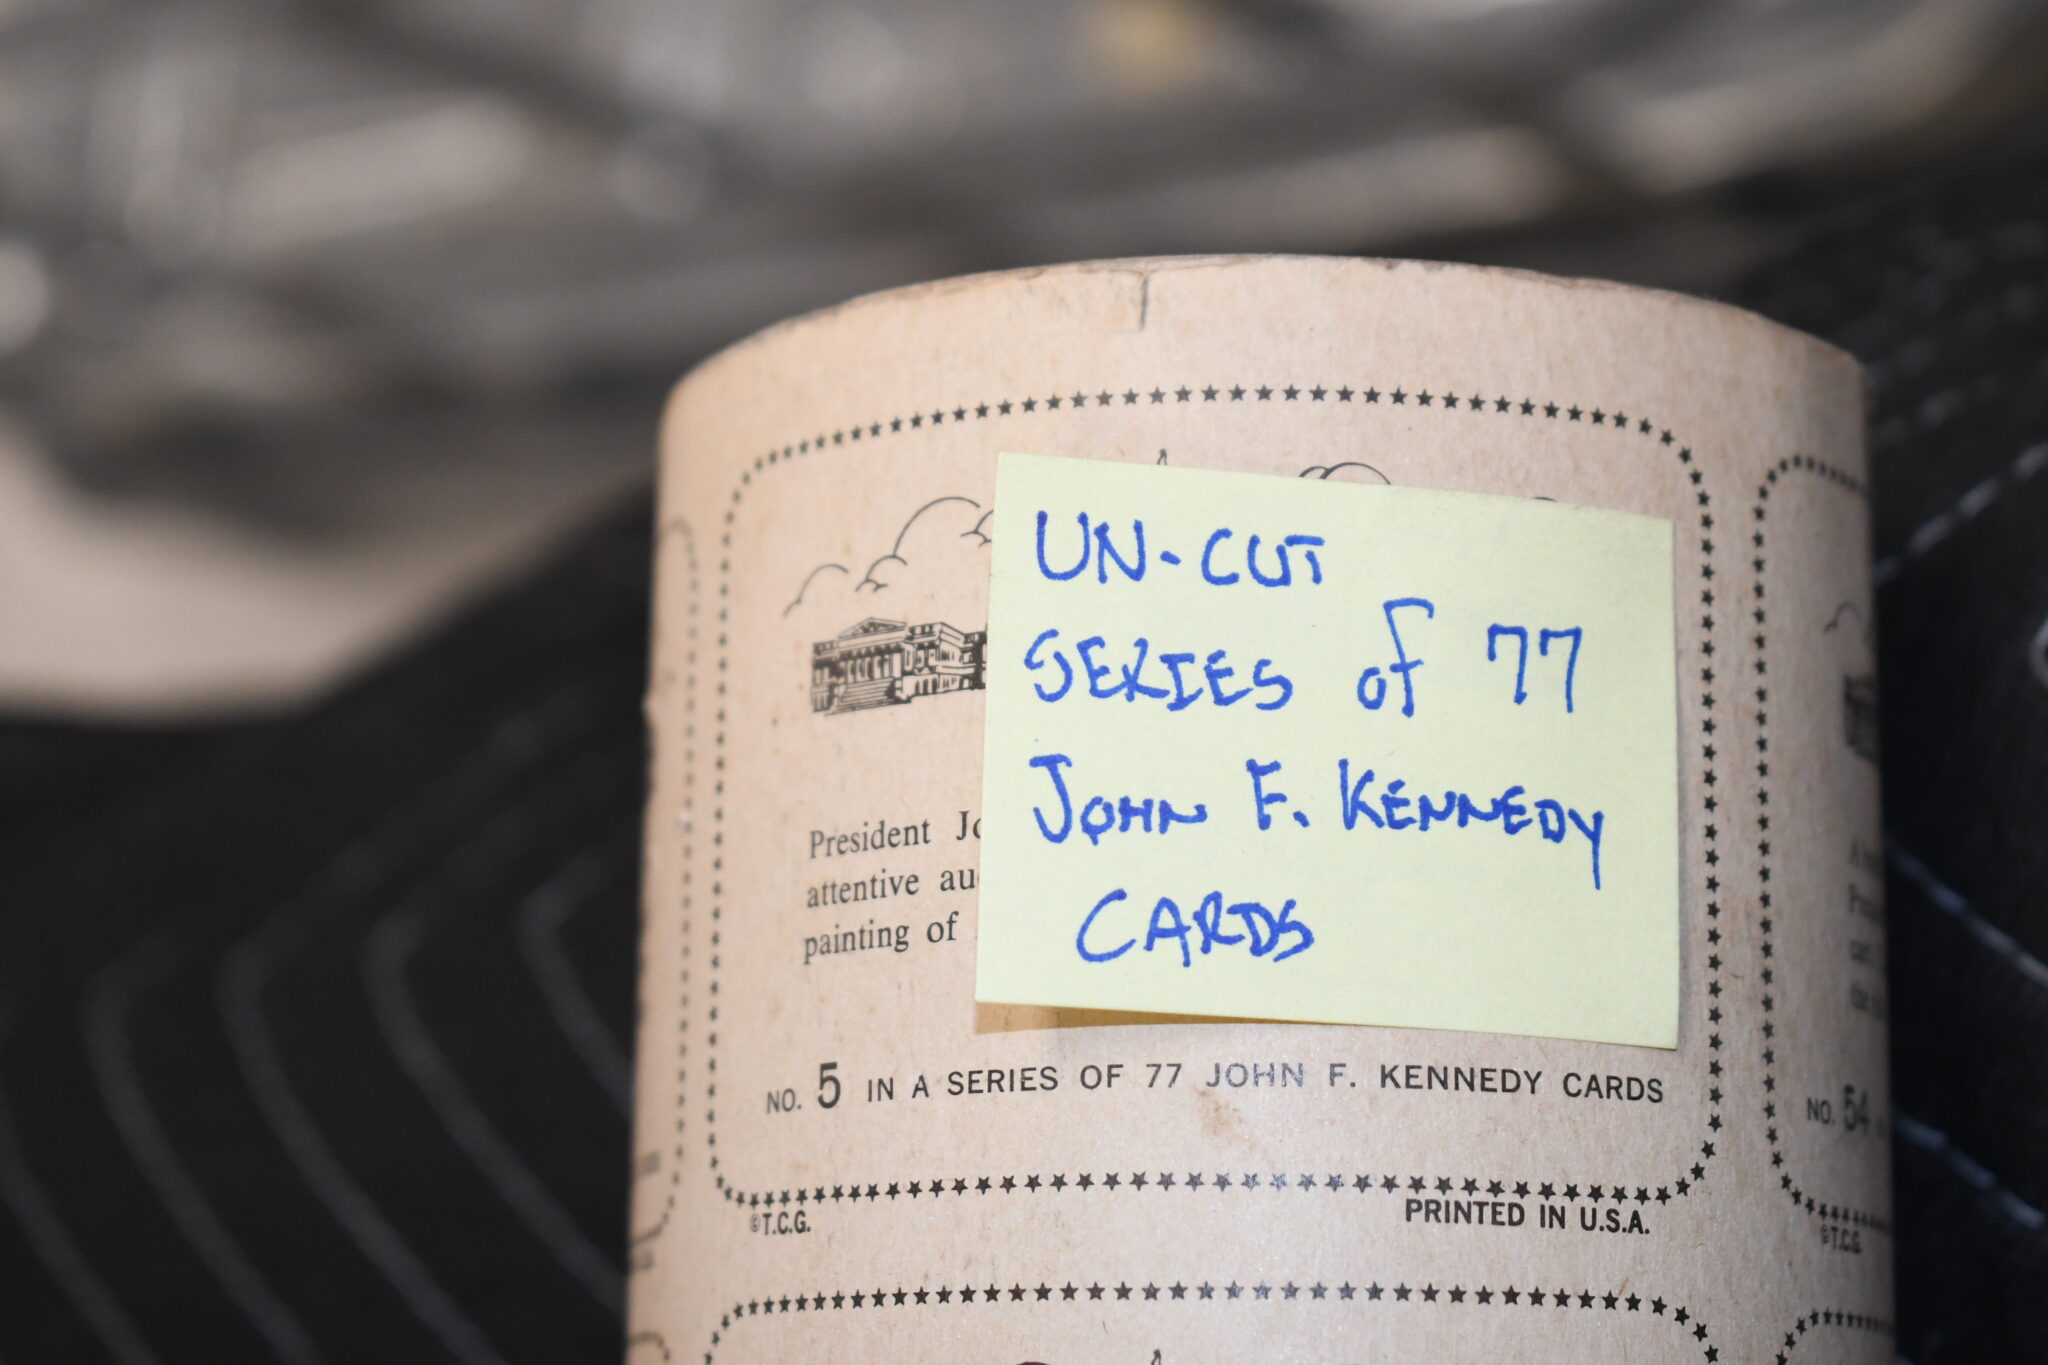 UN-CUT
SERIES of 77
JOHN F. KENNEDY
CARDS
President
attentive
painting of
NO. 5 IN A SERIES OF 77 JOHN F. KENNEDY CARDS
©T.C.G.
PRINTED IN U.S.A.
NO. 54
©T.C.G.